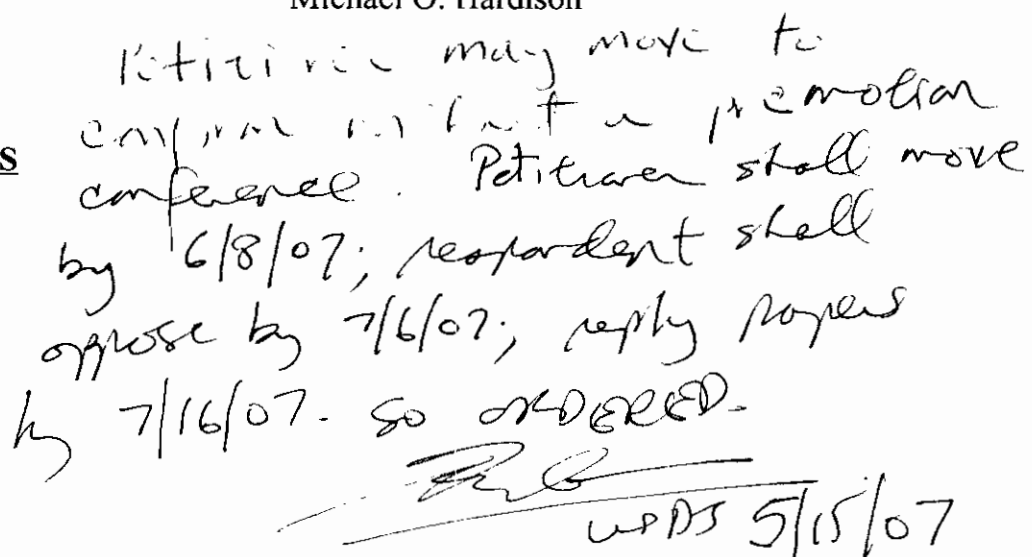 Michael O. Hardison
Petitioner may move to
confirm without a premotion
S
conference. Petitioner shall move
by 6/8/07; respondent shall
oppose by 7/6/07; reply papers
by 7/16/07. SO ORDERED.
USDJ 5/15/07